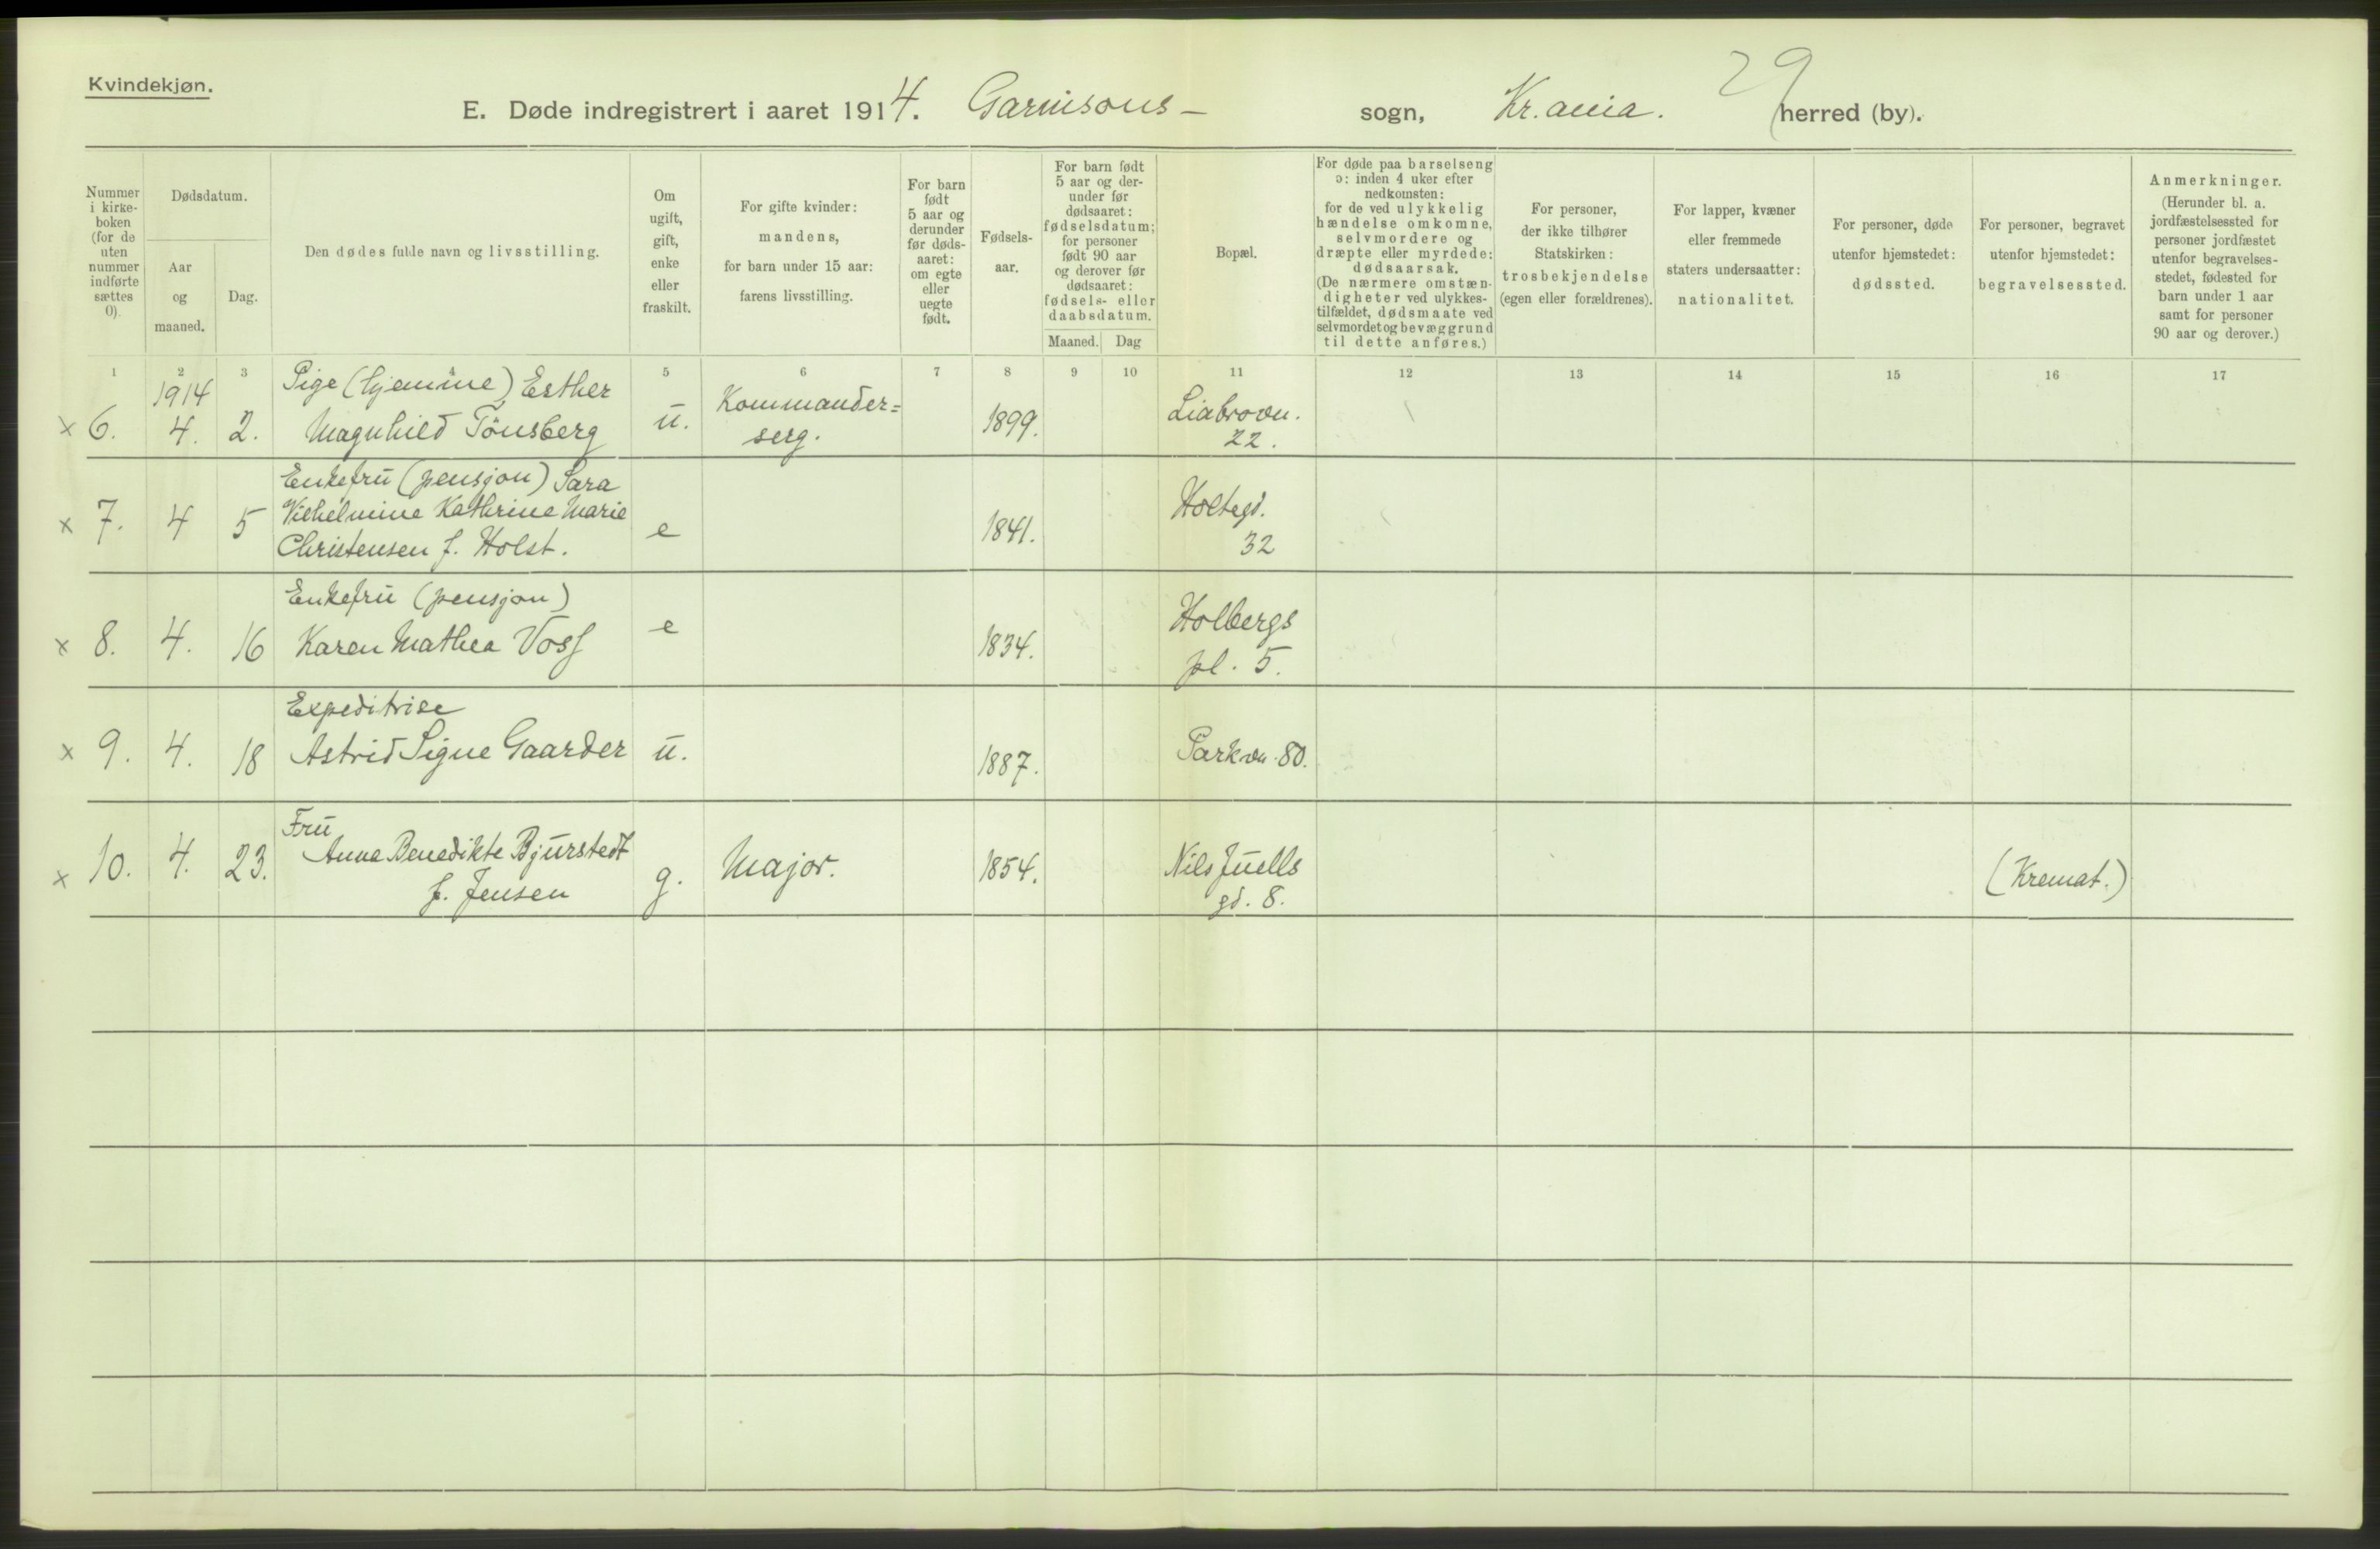 Kvindekjøn.
29
E. Døde indregistrert i aaret 1914. Garnisons- sogn, Kr.ania. herred (by).
Nummer
i kirke-
boken
(for de
uten
nummer
indførte
sættes
0).
Dødsdatum.
Aar
og
maaned.
Dag.
Den dødes fulde navn og livsstilling.
Om
ugift,
gift,
enke
eller
fraskilt.
For gifte kvinder:
mandens,
for barn under 15 aar:
farens livsstilling.
For barn
født
5 aar og
derunder
før døds-
aaret:
om egte
eller
uegte
født.
Fødsels-
aar.
For barn født
5 aar og der-
under før
dødsaaret:
fødselsdatum;
for personer
født 90 aar
og derover før
dødsaaret:
fødsels- eller
daabsdatum.
Maaned. Dag
Bopæl.
For døde paa barselseng
ɔ: inden 4 uker efter
nedkomsten:
for de ved ulykkelig
hændelse omkomne,
selvmordere og
dræpte eller myrdede:
dødsaarsak.
(De nærmere omstæn-
digheter ved ulykkes-
tilfældet, dødsmaate ved
selvmordet og bevæggrund
til dette anføres.)
For personer,
der ikke tilhører
Statskirken:
trosbekjendelse
(egen eller forældrenes).
For lapper, kvæner
eller fremmede
staters undersaatter:
nationalitet.
For personer, døde
utenfor hjemstedet:
dødssted.
For personer, begravet
utenfor hjemstedet:
begravelsessted.
Anmerkninger.
(Herunder bl. a.
jordfæstelsessted for
personer jordfæstet
utenfor begravelses-
stedet, fødested for
barn under 1 aar
samt for personer
90 aar og derover.)
1 2 3 4 5 6 7 8 9 10 11 12 13 14 15 16 17
1914 Pige (hjemme) Esther Kommandør= Liabrovn.
x 6. 4. 2. Magnhild Tönsberg u. serg. 1899. 22.
Enkefru (pensjon) Sara
x 7. 4 5 Vilhelmine Kathrine Marie e 1841. Holtegd.
Christensen f. Holst. 32
Enkefru (pensjon) Holbergs
x 8. 4. 16 Karen Mathea Voss e 1834. pl. 5.
Expeditrise
x 9. 4. 18 Astrid Signe Gaarder u. 1887. Parkvn. 80.
Fru
x 10. 4. 23. Anna Benedikte Bjurstedt g. Major. 1854. Nils Juells (Kremat.)
f. Jensen gd. 8.